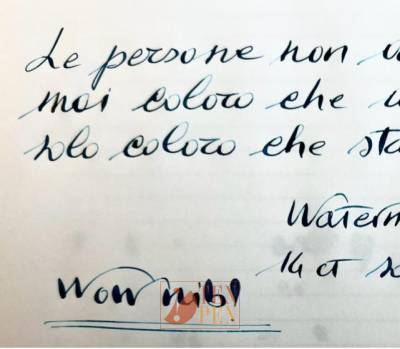 Le persone non
mai coloro che
solo coloro che sta
Waterm
14 ct
Wow nib!
PEN
PEN